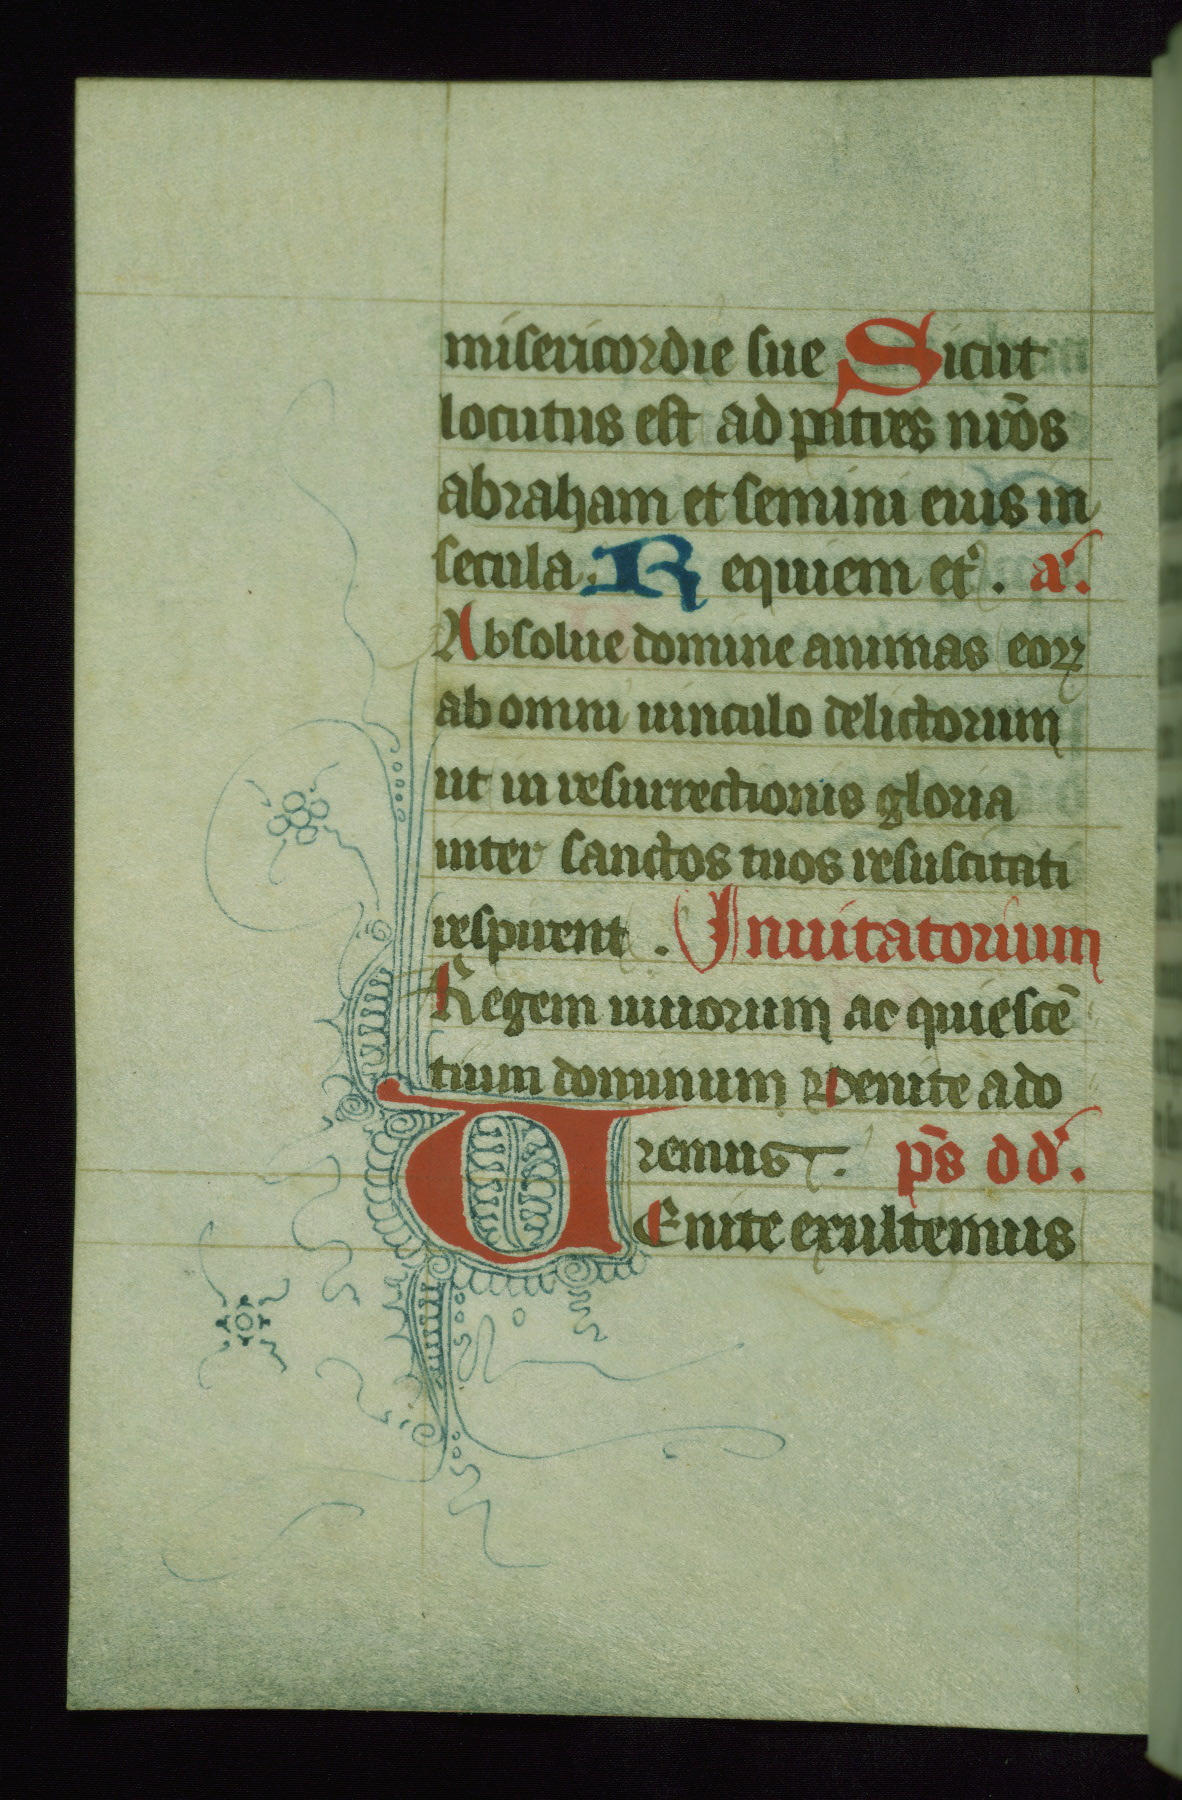 misericordie sue Sicut
locutus est ad patres nr̄os
abraham et semini eius in
secula. Requiem et̾. a̾.
Absolue domine animas eoꝝ
ab omni uinculo delictorum
ut in resurrectionis gloria
inter sanctos tuos resuscitati
respirent. Inuitatorium
Regem uiuorum ac quiescē
tium dominum Venite ado
remus. ps̄ dd̾.
VEnite exultemus